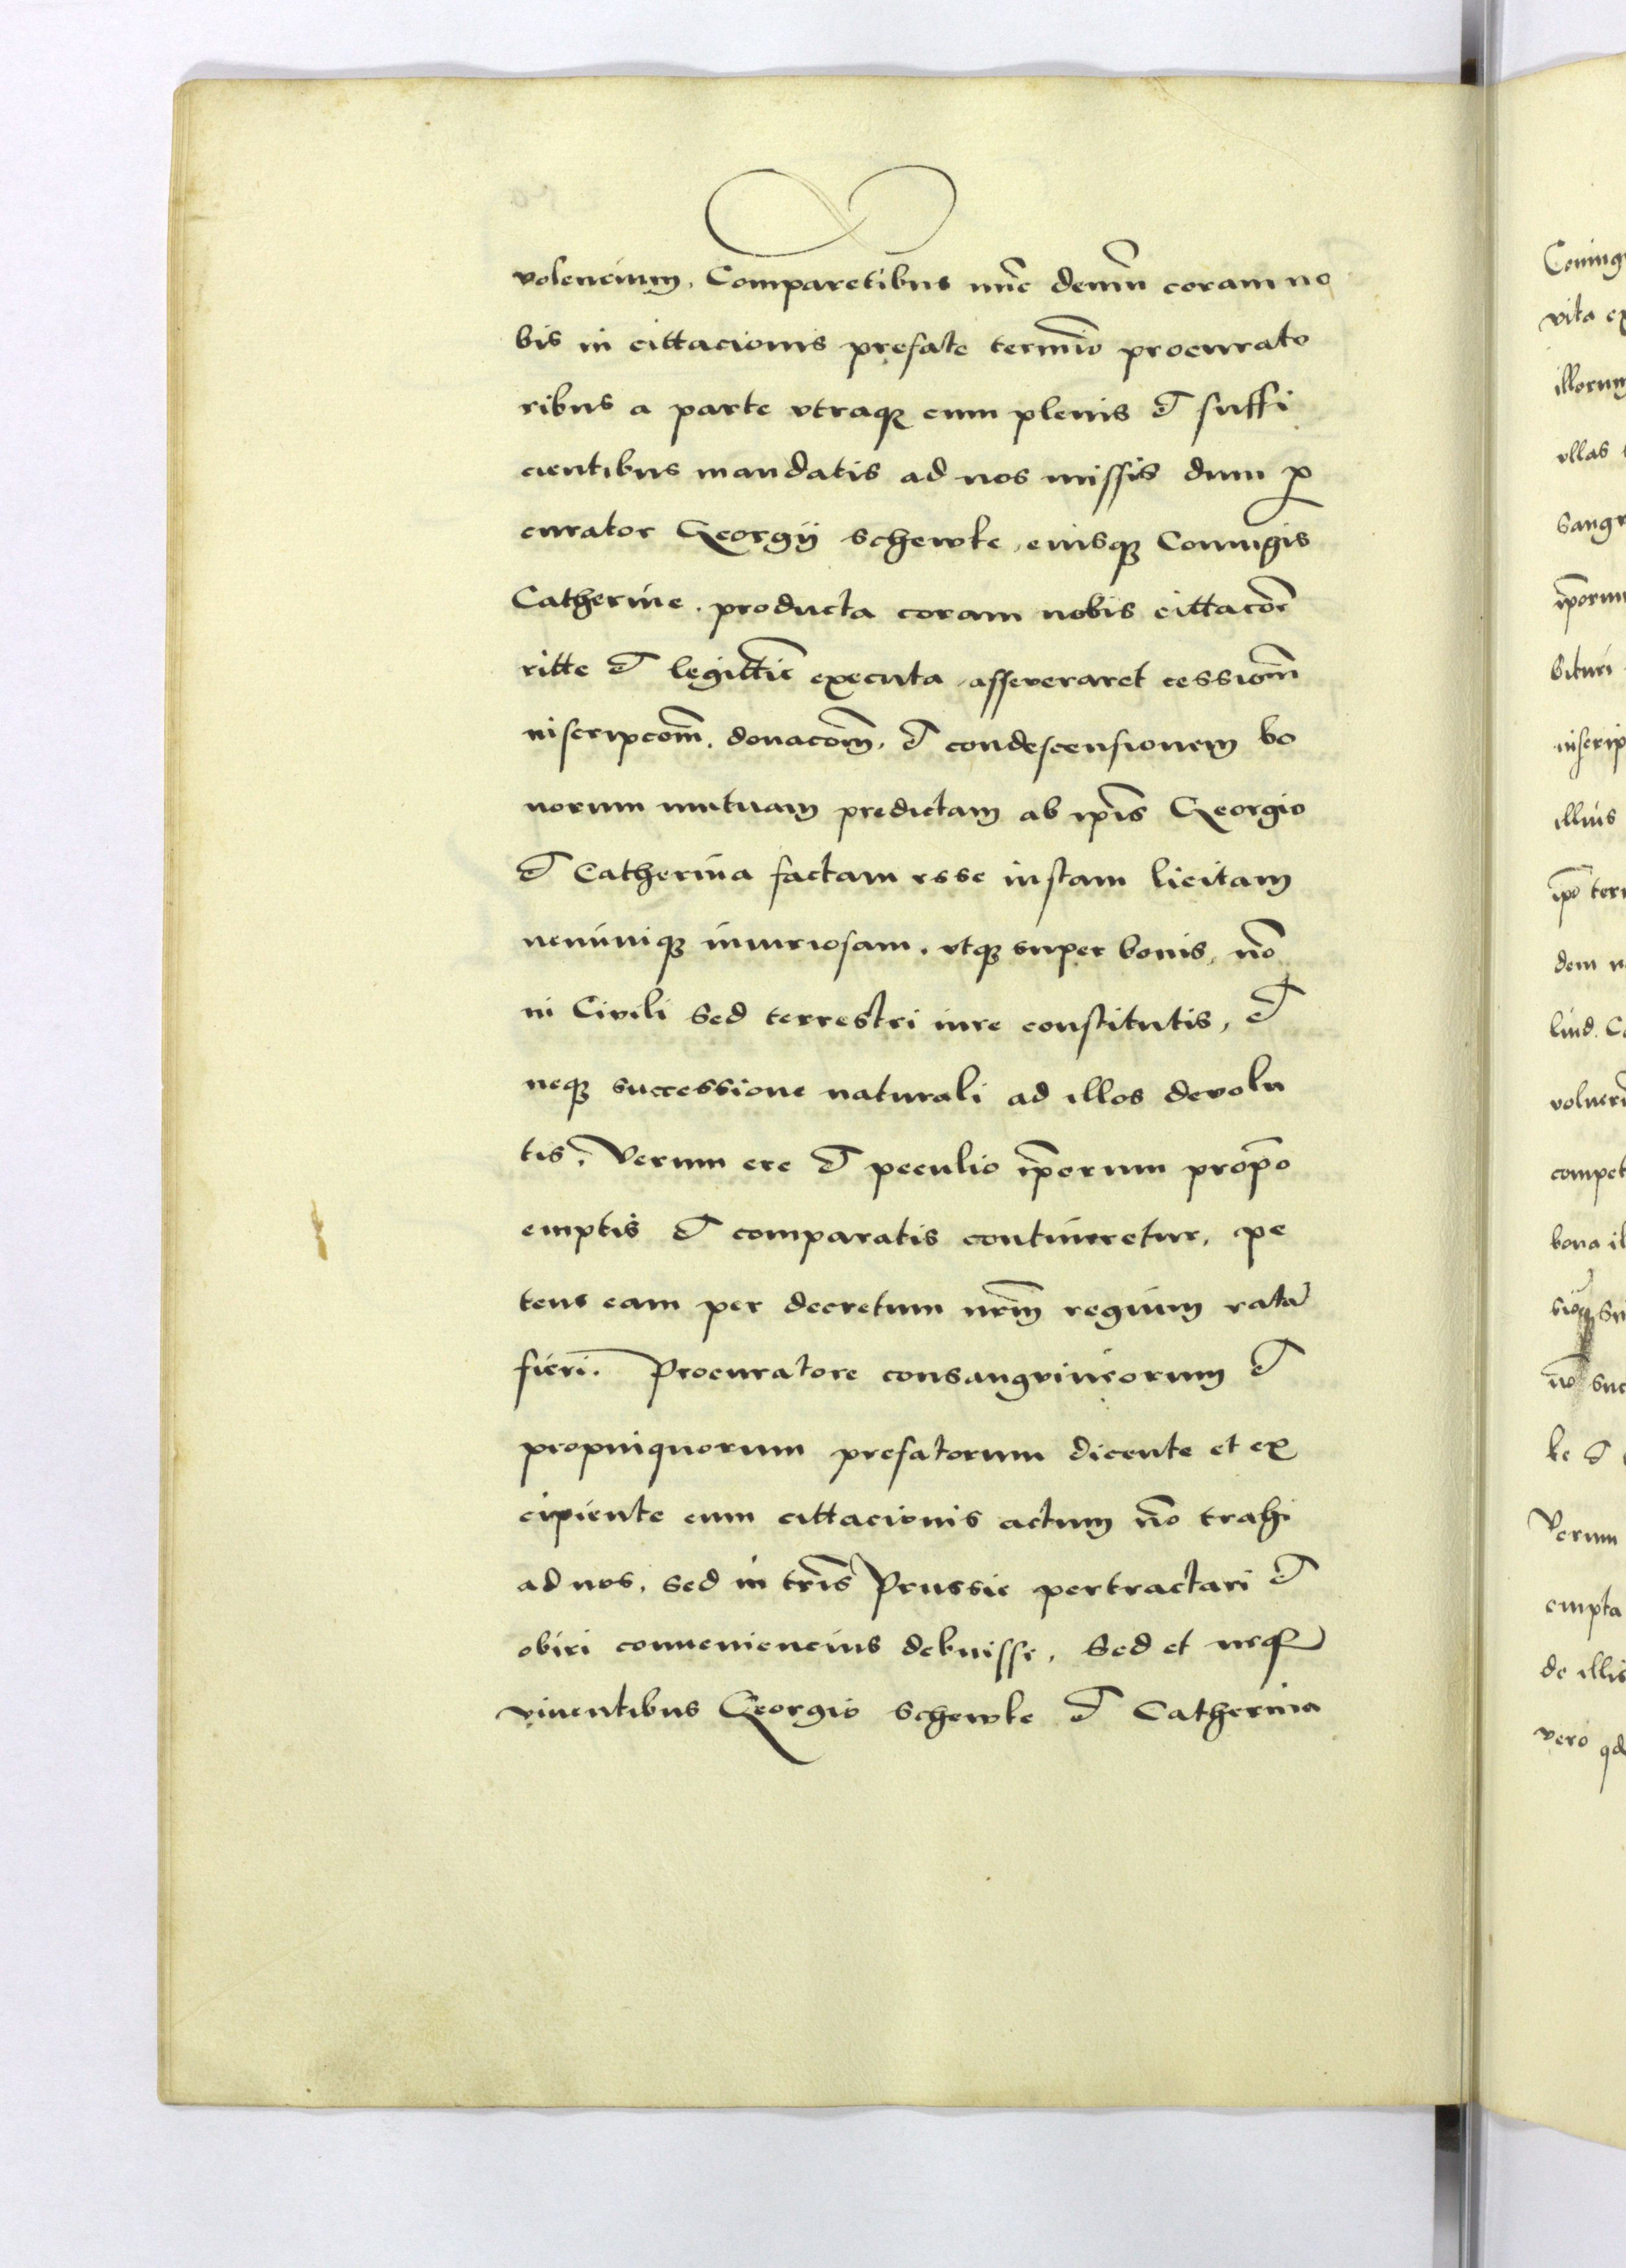 volencium, Comparetibus nūc demū coram no
bis in cittacionis prefate termīo procurato
ribus a parte vtraqꝫ cum plenis et suffi
cientibus mandatis ad nos missis dum ꝓ
curator Georgij schewke, eiusqꝫ Coniugis
Catherine. producta coram nobis cittacōe
ritte et legittīe executa, asseveraret cessionē
inscripcoēm. donacoēm, et condescensionem bo
norum mutuam predictam ab ip̄is Georgio
et Catherina factam esse iustam licitam
neminiqꝫ iniuriosam, vtqꝫ super bonis, nō
in Civili Sed terrestri iure constitutis, et
neqꝫ successione naturali ad illos devolu
tis, Verum ere et peculio ip̄orum prop̄o
emptis et comparatis contineretur, pe
tens eam per decretum nr̄m regium ratā
fieri. Procuratore consangvineorum et
propinquorum prefatorum dicente et ex
cipiente eum cittacionis actum nō trahi
ad nos, sed in tr̄is Prussie pertractari et
obiri conveniencius debuisse, Sed et neqꝫ
viventibus Georgio schewke et Catherina
Coniug
vita ex
illorum
ullas
sangv
ip̄orum
bituri
inscrip
illius
ip̄o terr
dem
lind. Co
voluer
compet
bona il
nō suc
ke et
Verum
empta
de illis
vero qd